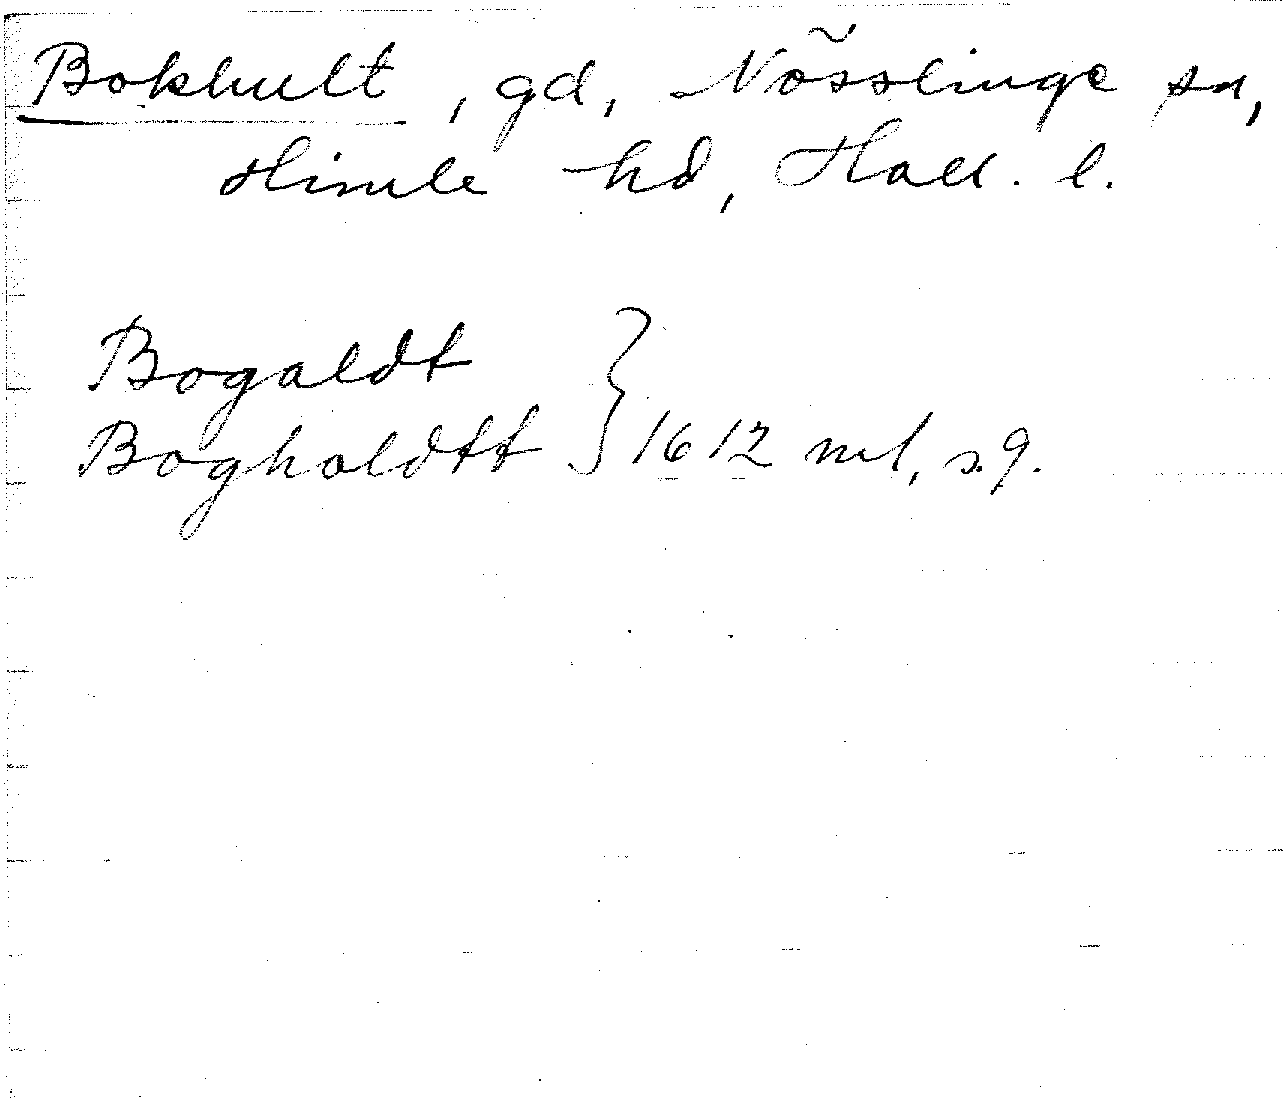 Bokhult, gd, Nösslinge sn,
Himle hd, Hall. l.
Bogaldt
Bogholdtt } 1612 ml, s. 9.